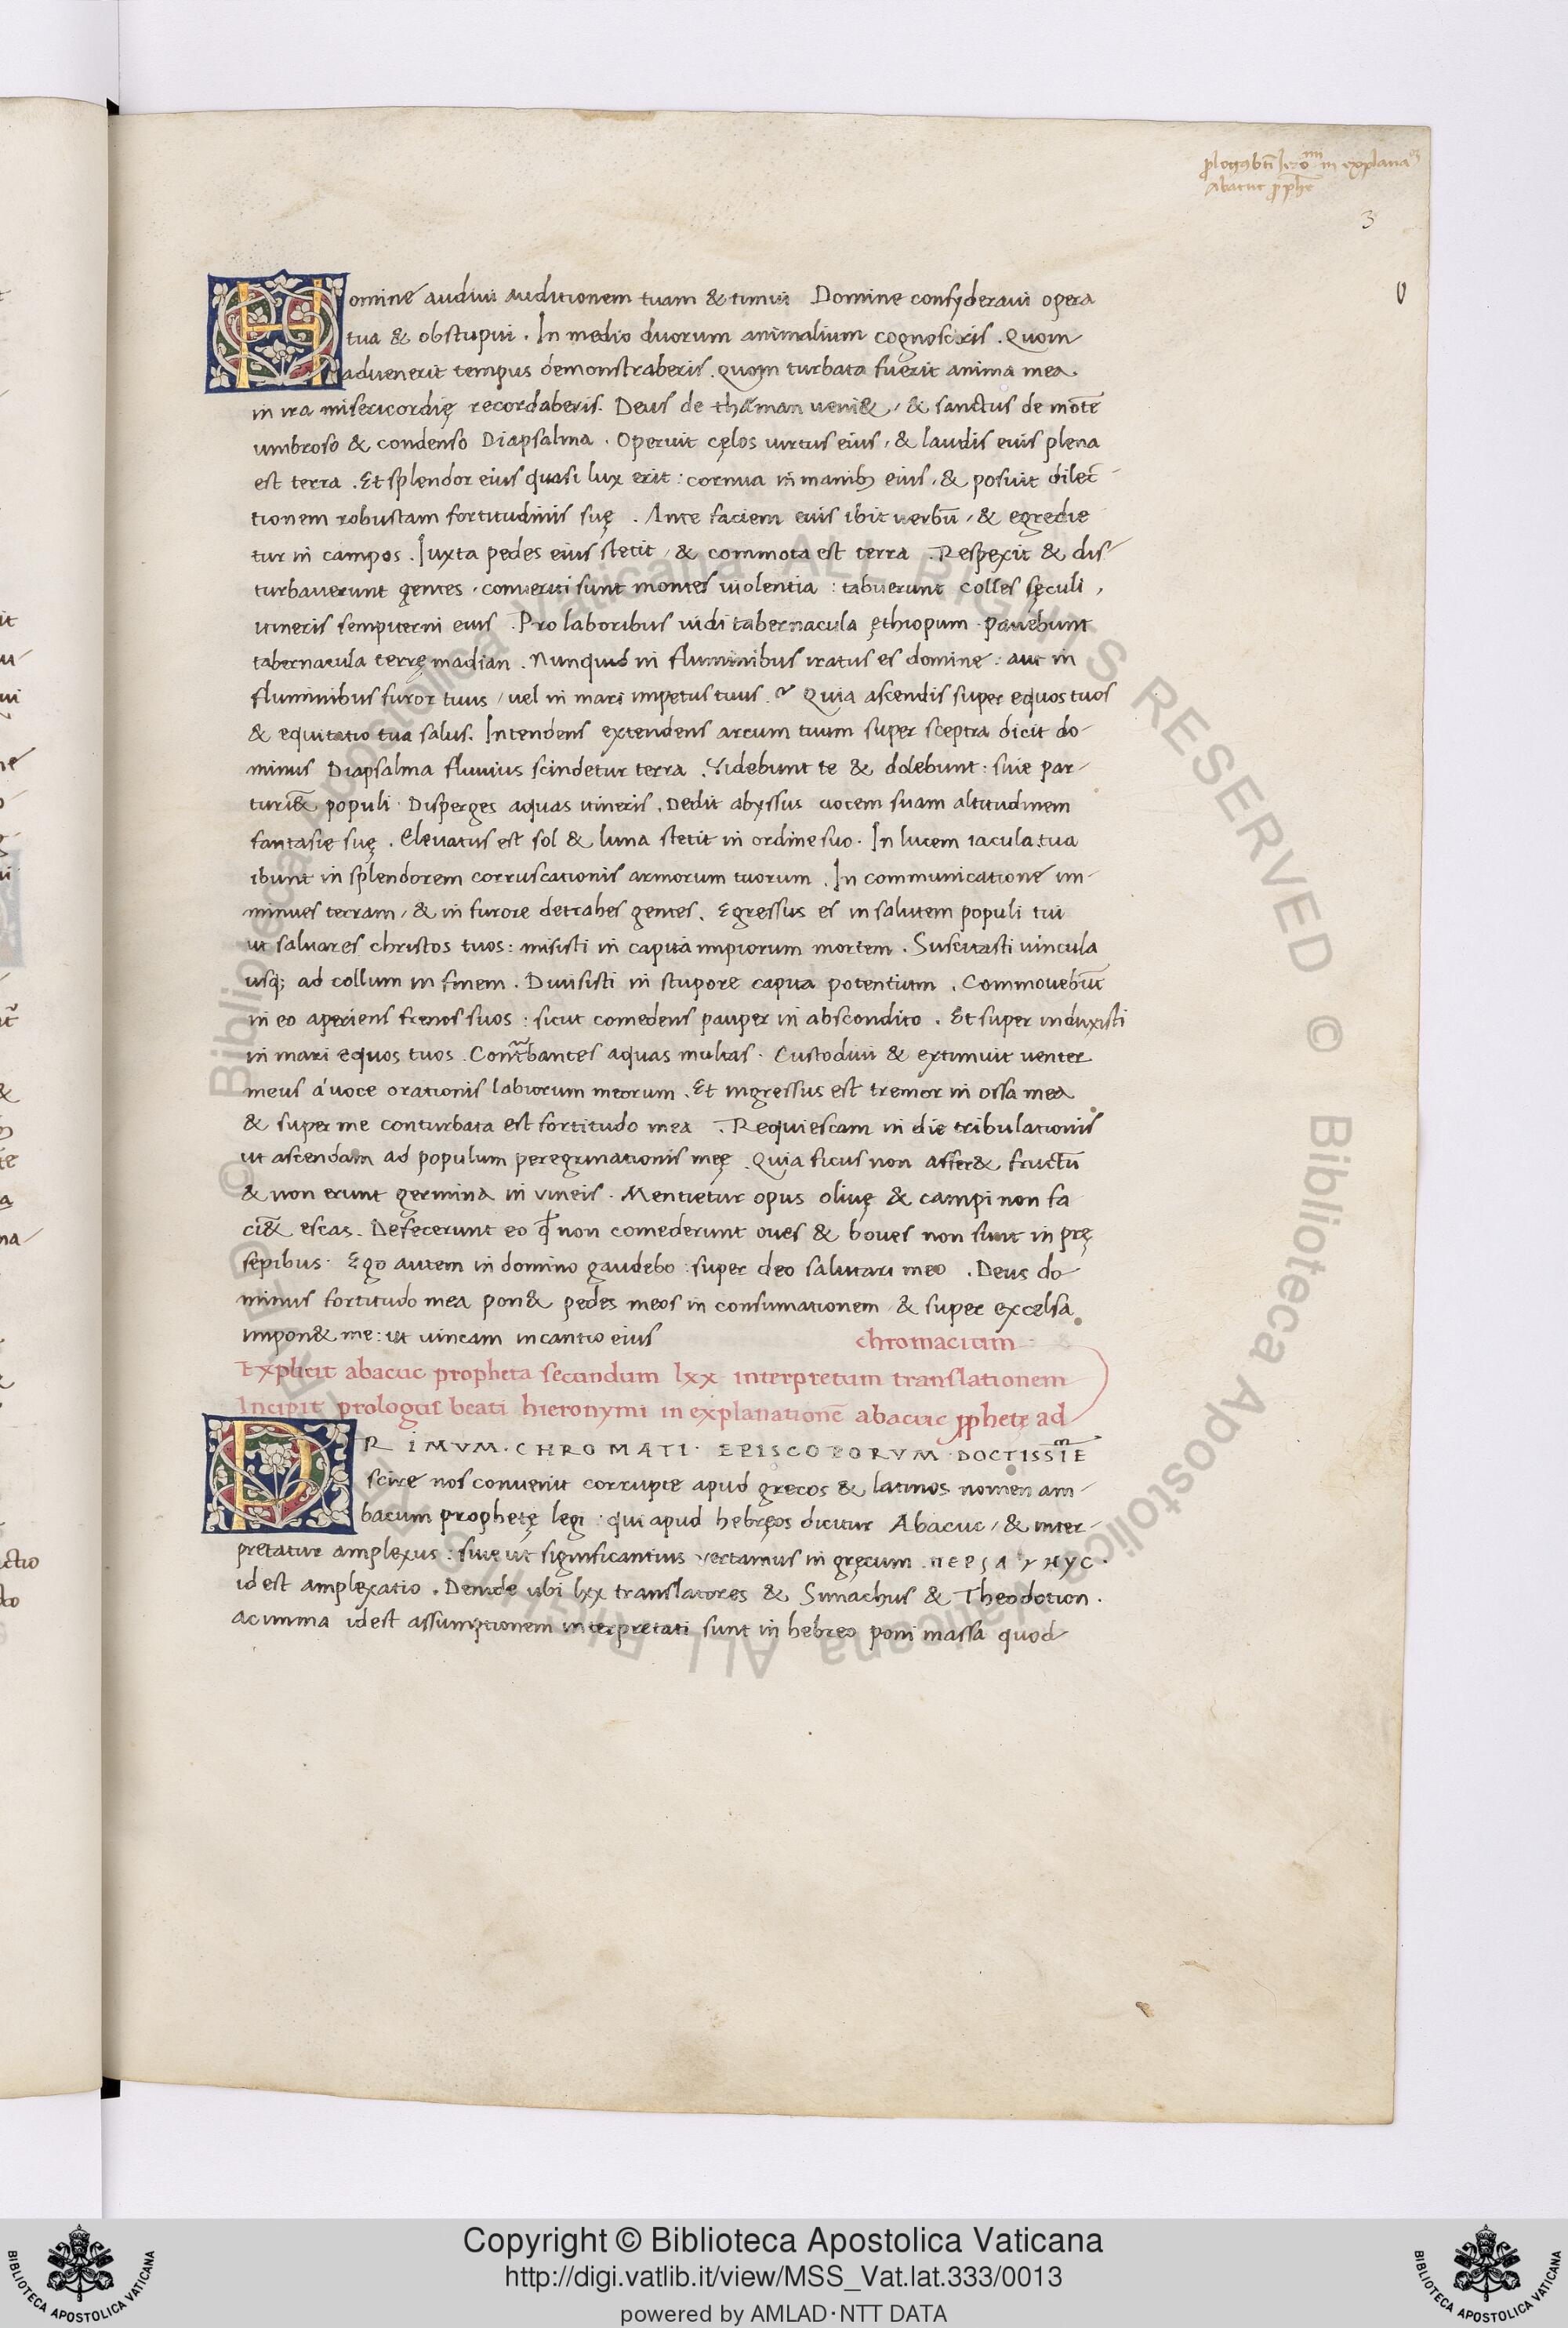 ꝓlogꝰ bti Ieronimi in explana
abacuc ꝓphe
3
Homine audiui auditionem tuam & timui Domine consyderaui opera
tua & obstupui . In medio duorum animalium cognosceris . Quom
aduenerit tempus demonstraberis . quom turbata fuerit anima mea
in ira misericordię recordaberis . Deus de thæman ueni& , & sanctus de mōte
umbroso & condenso Diapsalma . Operuit cęlos uirtus eius , & laudis euis plena
est terra . Et splendor eius quasi lux erit : cornua in manibꝫ eius , & posuit dilec-
tionem robustam fortitudinis suę . Ante faciem euis ibit uerbū , & egredie
tur in campos . Iuxta pedes eius stetit , & commota est terra . Respexit & dis-
turbauerunt gentes , conuersi sunt montes uiolentia : tabuerunt colles sęculi ,
itineris sempiterni eius . Pro laboribus uidi tabernacula ęthiopum . pauebunt
tabernacula terrę madian . Nunquid in fluminibus iratus es domine : aut in
fluminibus furor tuus , uel in mari impetus tuus . ? Quia ascendis super equos tuos
& equitatio tua salus . Intendens extendens arcum tuum super sceptra dicit do-
minus Diapsalma fluuius scindetur terra . Videbunt te & dolebunt : suie par-
turi&̄ populi . Disperges aquas itineris . Dedit abyssus uocem suam altitudinem
fantasię suę . Eleuatus est sol & luna stetit in ordine suo . In lucem iacula tua
ibunt in splendorem corruscationis armorum tuorum . In communicatione im-
minues terram , & in furore detrahes gentes . Egressus es in salutem populi tui
ut saluares christos tuos : misisti in capita impiorum mortem . Suscitasti uincula
usq; ad collum in finem . Diuisisti in stupore capita potentium . Commouebūt
in eo aperiens frenos suos : sicut comedens pauper in abscondito . Et super induxisti
in mari equos tuos . Conturbantes aquas multas . Custodiui & extimuit uenter
meus a uoce orationis labiorum meorum . Et ingressus est tremor in ossa mea
& super me conturbata est fortitudo mea . Requiescam in die tribulationis
ut ascendam ad populum peregrinationis meę . Quia ficus non affer& fructū
& non erunt germina in uineis . Mentietur opus oliuę & campi non fa
ci&̄ escas . Defecerunt eo ꝙ non comederunt oues & boues non sunt in prę
sepibus . Ego autem in domino gaudebo : super deo salutari meo . Deus do-
minus fortitudo mea pon& pedes meos in consumationem & super excelsa
impon& me : ut uincam in cantico eius
chromacium
Explicit abacuc propheta secundum lxx interpretum translationem
Incipit prologus beati hieronymi in explanationē abacuc ꝓphetę ad
PRIMVM . CHROMATI . EPISCOPORVM . DOCTISSIME
scire nos conuenit corrupte apud grecos & latinos nomen am-
bacum prophetę legi : qui apud hebręos dicitur Abacuc , & inter-
pretatur amplexus : siue ut significantius vertamus in gręcum .
id est amplexatio . Deinde ubi lxx translatores & Simachus & Theodotion .
acumma id est assumptionem interpretati sunt in hebreo poni massa quod
Copyright © Biblioteca Apostolica Vaticana
http://digi.vatlib.it/view/MSS_Vat.lat.333/0013
powered by AMLAD·NTT DATA
BIBLIOTECA APOSTOLICA VATICANA
BIBLIOTECA APOSTOLICA VATICANA
© Biblioteca Apostolica Vaticana ALL RIGHTS RESERVED © Biblioteca Apostolica Vaticana ALL RIGHTS RESERVED